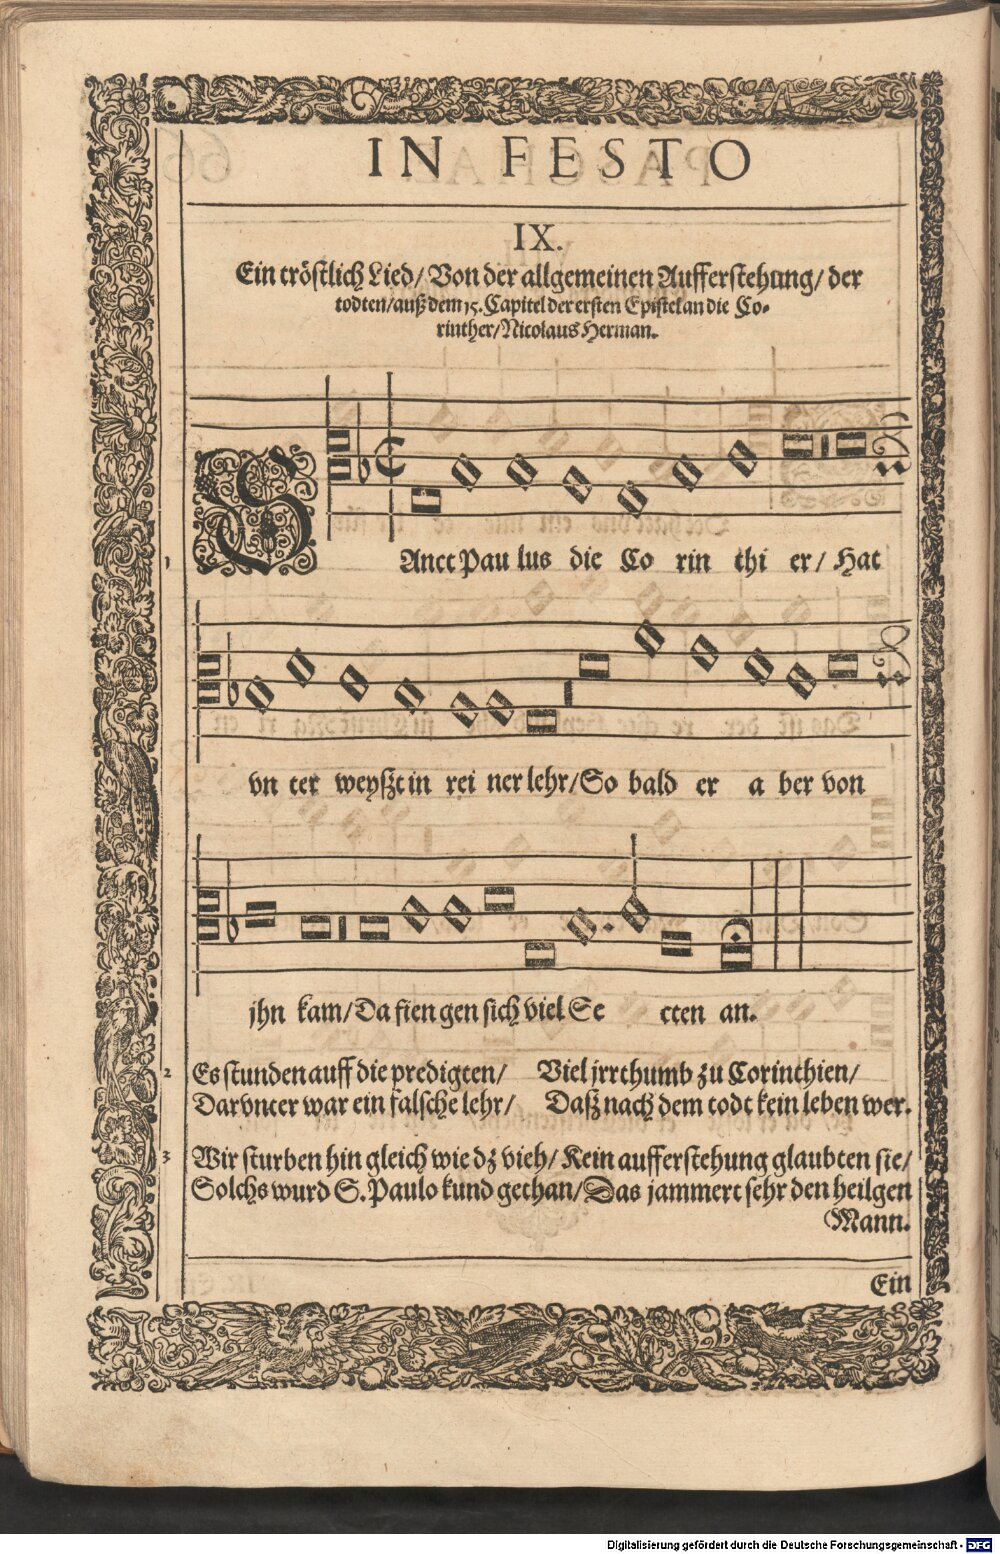 IN FESTO
IX.
Ein tröstlich Lied/ Von der allgemeinen Aufferstehung/ der
todten/ auß dem 15. Capitel der ersten Epistel an die Co-
rinther/ Nicolaus Herman.
1 SAnct Pau lus die Co rin thi er/ Hat
vn ter weyßt in rei ner lehr/ So bald er a ber von
jhn kam/ Da fien gen sich viel Se cten an.
2 Es stunden auff die predigten/ Viel jrrthumb zu Corinthien/
Darvnter war ein falsche lehr/ Daß nach dem todt kein leben wer.
3 Wir sturben hin gleich wie dz vieh/ Kein aufferstehung glaubten sie/
Solchs wurd S. Paulo kund gethan/ Das jammert sehr den heilgen
Mann.
Ein
Digitalisierung gefördert durch die Deutsche Forschungsgemeinschaft - DFG